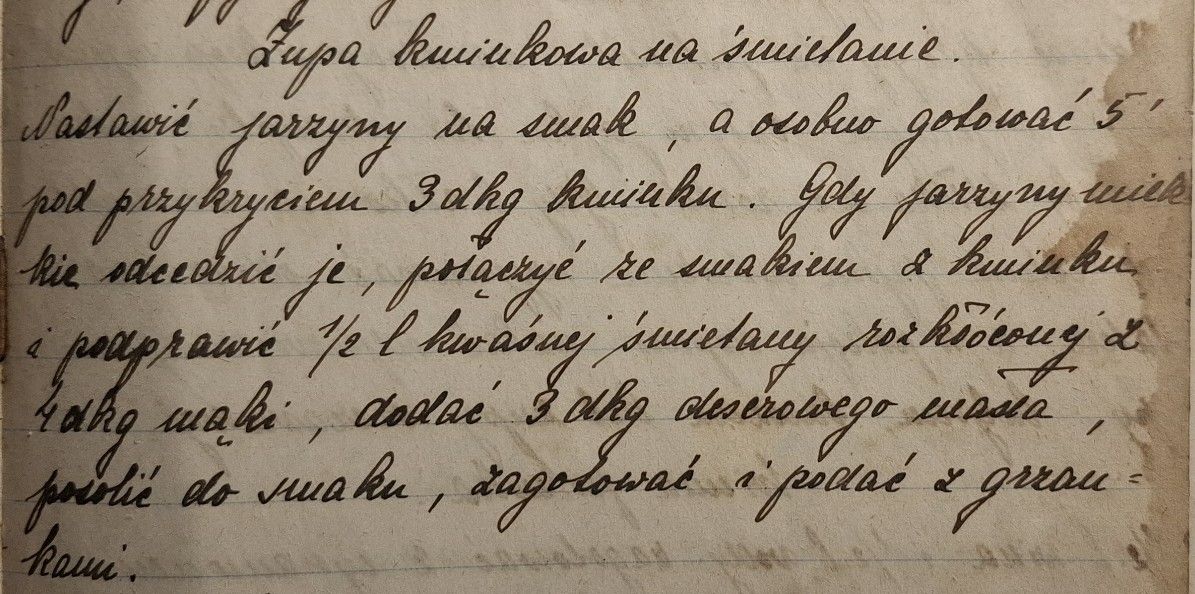 Zupa kminkowa na śmietanie.
Nastawić jarzyny na smak, a osobno gotować 5'
pod przykryciem 3 dkg kminku. Gdy jarzyny mięk
kie odcedzić je, połączyć ze smakiem z kminku
i podprawić 1/2 l kwaśnej śmietany rozkłóconej z
4 dkg mąki, dodać 3 dkg deserowego masła,
posolić do smaku, zagotować i podać z grzan=
kami.